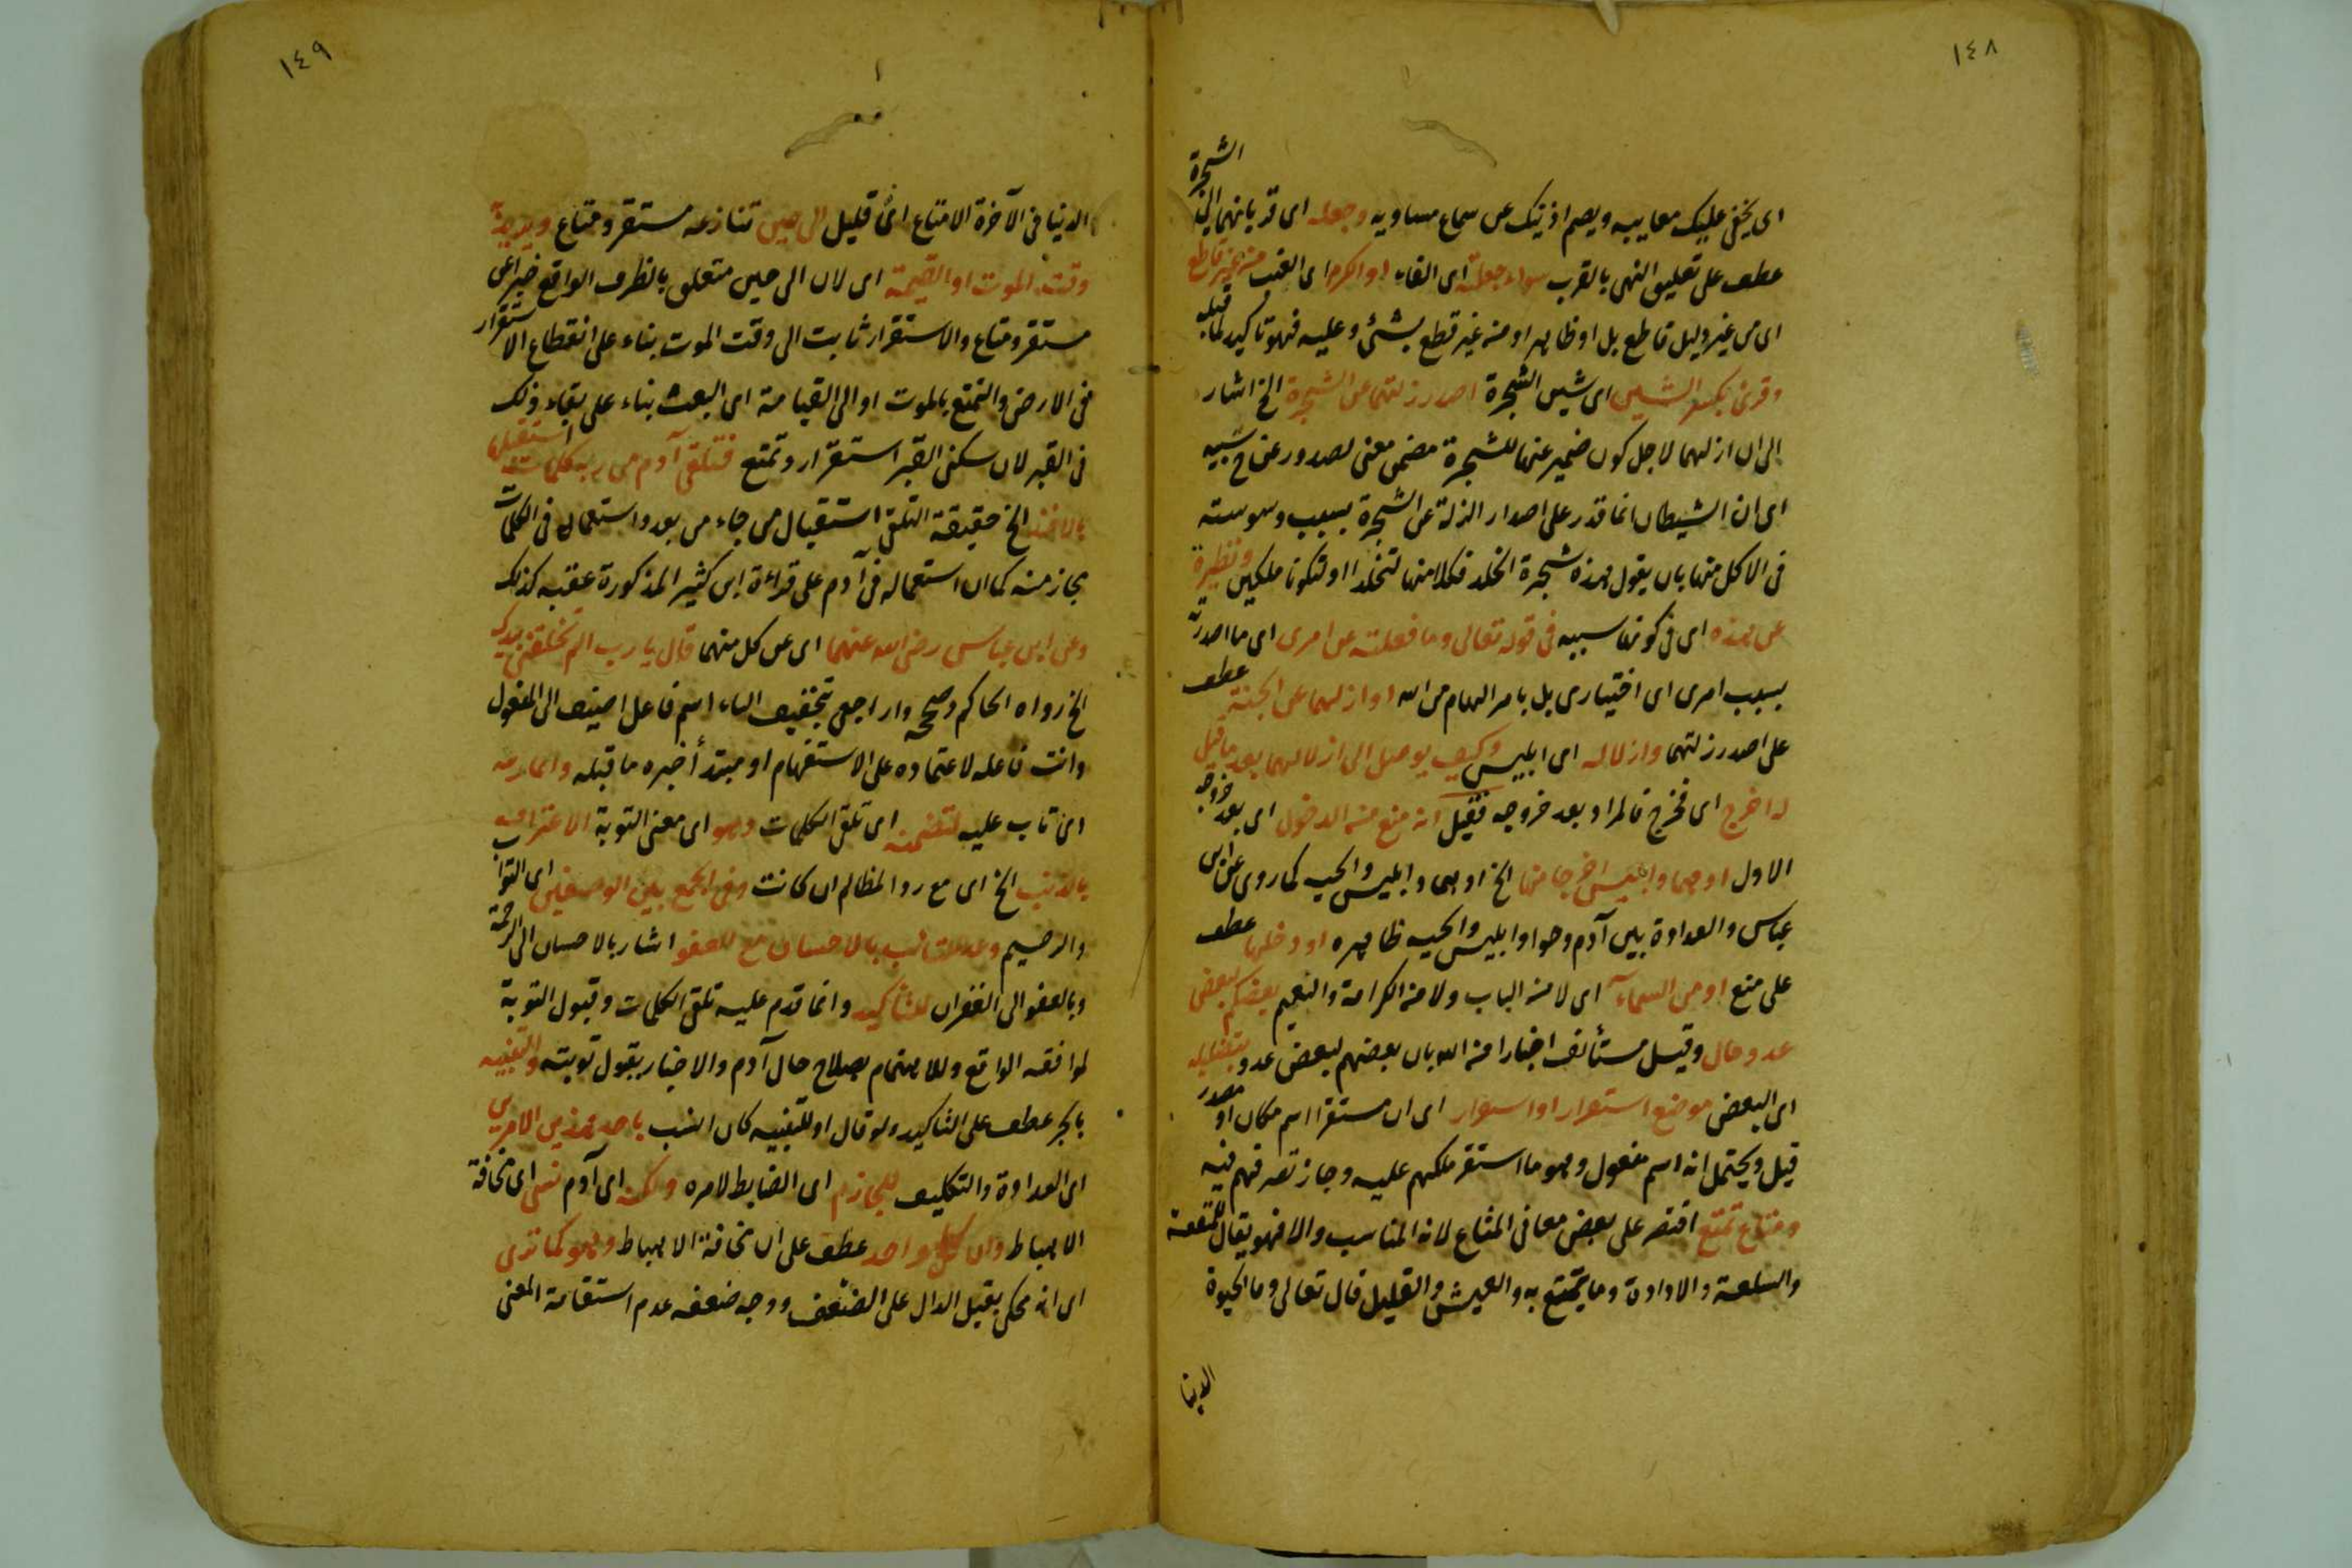 ١٤٨
اى يخفى عليك معايبه ويصم اذنيك عن سماع مساويه وجعله اى قربانهما الى الشجرة
عطف على تعليق النهى بالقرب سواء جعلته اى الفاء او الكرم اى العنب من غير قاطع
اى من غير دليل قاطع بل او ظاهر او من غير قطع بشئ وعليه فهو تاكيد لما قبله
وقرئ بكسر الشين اى شين الشجرة اصدر زلتهما عن الشجرة الخ اشار
الى ان ازلهما لاجل كون ضمير عنها للشجرة مضمن معنى لصدور عن ح سببية
اى ان الشيطان انما قدر على اصدار الزلة عن الشجرة بسبب وسوسته
فى الاكل منها بان يقول هذه شجرة الخلد فكلا منها لتخلدا او لتكونا ملكين ونظيرة
عن هذه اى فى كونها سببيه فى قوله تعالى وما فعلته عن امرى اى ما اصدرته
بسبب امرى اى اختيارى بل بامر الهام من الله او ازلهما عن الجنة عطف
على اصدر زلتهما وازلاله اى ابليس وكيف يوصل الى ازلالهما بعد ما قيل
له اخرج اى فخرج فالمراد بعد خروجه فقيل انه منع من الدخول اى بعد خروجه
الاول او هما وابليس اخرجا منها الخ او هما وابليس والحية كما روى عن ابن
عباس والعداوة بين آدم وحوا وابليس والحية ظاهره او دخلها عطف
على منع او من السماء اى لا من الباب ولا من الكرامة والنعيم بعضكم لبعض
عدو حال وقيل مستأنف اخبارا من الله بان بعضهم لبعض عدو بتضليله
اى البعض موضع استقرار او استقرار اى ان مستقرا اسم مكان او مصدر
قيل ويحتمل انه اسم مفعول وهو ما استقر ملكهم عليه وجاز تصرفهم فيه
ومتاع تمتع اقتصر على بعض معانى المتاع لانه المناسب والا فهو يقال للمنفعة
والسلعة والاداوة وما يتمتع به والعيش والقليل قال تعالى وما الحيوة
الدنيا
١٤٩
الدنيا فى الآخرة الا متاع اى قليل الى حين تنازعه مستقر ومتاع ويريد به
وقت الموت او القيمة اى لان الى حين متعلق بالظرف الواقع خبرا عن
مستقر ومتاع والاستقرار ثابت الى وقت الموت بناء على انقطاع الاستقرار
فى الارض والتمتع بالموت او الى القيامة اى البعث بناء على بقاء ذلك
فى القبر لان سكنى القبر استقرار وتمتع فتلقى آدم من ربه كلمات استقبلها
بالاخذ الخ حقيقة التلقى استقبال من جاء من بعد واستعماله فى الكلمات
مجاز منه كما ان استعماله فى آدم على قراءة ابن كثير المذكورة عقبه كذلك
وعن ابن عباس رضى الله عنهما اى عن كل منهما قال يا رب الم تخلقنى بيدك
الخ رواه الحاكم وصححه واراجعى بتخفيف الياء اسم فاعل اضيف الى المفعول
وانت فاعله لاعتماده على الاستفهام او مبتدأ خبره ما قبله وانما رتبه
اى تاب عليه لتضمنه اى تلقى الكلمات وهو اى معنى التوبة الاعتراف
بالذنب الخ اى مع رد المظالم ان كانت وفى الجمع بين الوصفين اى التواب
والرحيم وعد للتائب بالاحسان مع العفو اشار بالاحسان الى الرحمة
وبالعفو الى الغفران للتأكيد وانما قدم عليه تلقى الكلمات وقبول التوبة
لموافقه الواقع وللاهتمام بصلاح حال آدم والاخبار بقبول توبته والتنبيه
بالجر عطف على التأكيد ولو قال او للتنبيه كان انسب باحد هذين الامرين
اى العداوة والتكليف للحازم اى الضابط لامره ولكنه اى آدم نسى اى مخافة
الاهباط وان كل واحد عطف على ان مخافة الاهباط وهو كما ترى
اى انه محكى بقيل الدال على الضعف ووجه ضعفه عدم استقامة المعنى